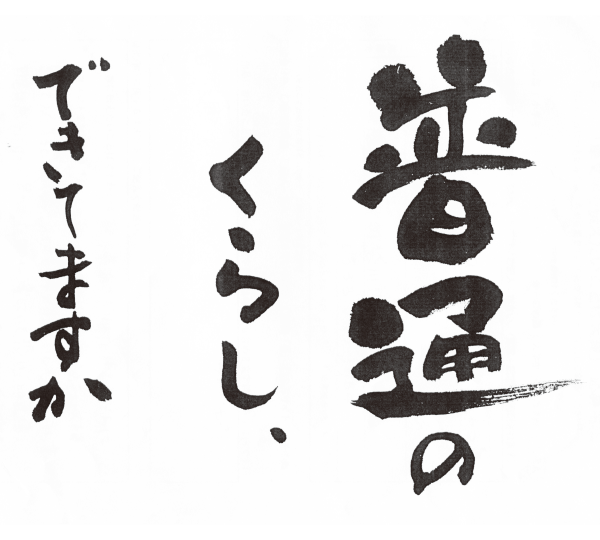 普通の
くらし、
できてますか